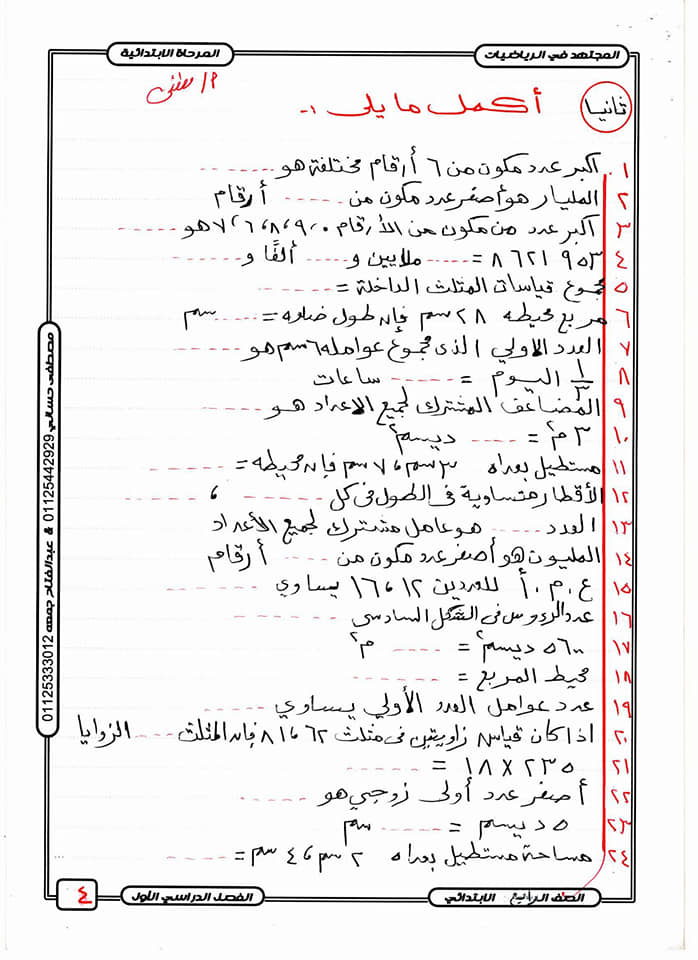 المجتهد في الرياضيات
المرحلة الابتدائية
ثانيا
أكمل ما يلي :-
١ اكبر عدد مكون من ٦ أرقام مختلفة هو ------
٢ المليار هو أصغر عدد مكون من ----- أرقام
٣ اكبر عدد من مكون من الأرقام ٠،٩،٨،٦،٧ هو ------
٤ ٨٦٢١٩٥٣ = ----- ملايين و ----- ألفًا و -----
٥ مجموع قياسات المثلث الداخلة = ------
٦ مربع محيطه ٢٨ سم فإنه طول ضلعه = ----- سم
٧ العدد الاولي الذى مجموع عوامله ٦ سم هو ------
٨ ١/٣ اليوم = ------ ساعات
٩ المضاعف المشترك لجميع الاعداد هو ------
١٠ ٣ م٢ = ----- ديسم٢
١١ مستطيل بعداه ٣ سم ، ٧ سم فإنه محيطه = ------
١٢ الأقطار متساوية فى الطول فى كل ------ ، ------
١٣ العدد ----- هو عامل مشترك لجميع الأعداد
١٤ المليون هو أصغر عدد مكون من ----- أرقام
١٥ ع.م.أ للعددين ١٢ ، ١٦ يساوي ------
١٦ عدد الرؤوس فى الشكل السداسى ------
١٧ ٥٦٠٠ ديسم٢ = ----- م٢
١٨ محيط المربع = ------
١٩ عدد عوامل العدد الأولي يساوي ------
٢٠ اذا كان قياس زاويتين فى مثلث ٦٢ ، ٨١ فإنه المثلث ----- الزوايا
٢١ ٢٣٥ × ١٨ = ------
٢٢ أصغر عدد أولى زوجي هو ------
٢٣ ٥ ديسم = ------ سم
٢٤ مساحة مستطيل بعداه ٢ سم ، ٤ سم = ------
مصطفى حساني 01125442929 & عبدالفتاح جمعه 01125333012
الصف الرابع الابتدائي
الفصل الدراسي الأول
٤